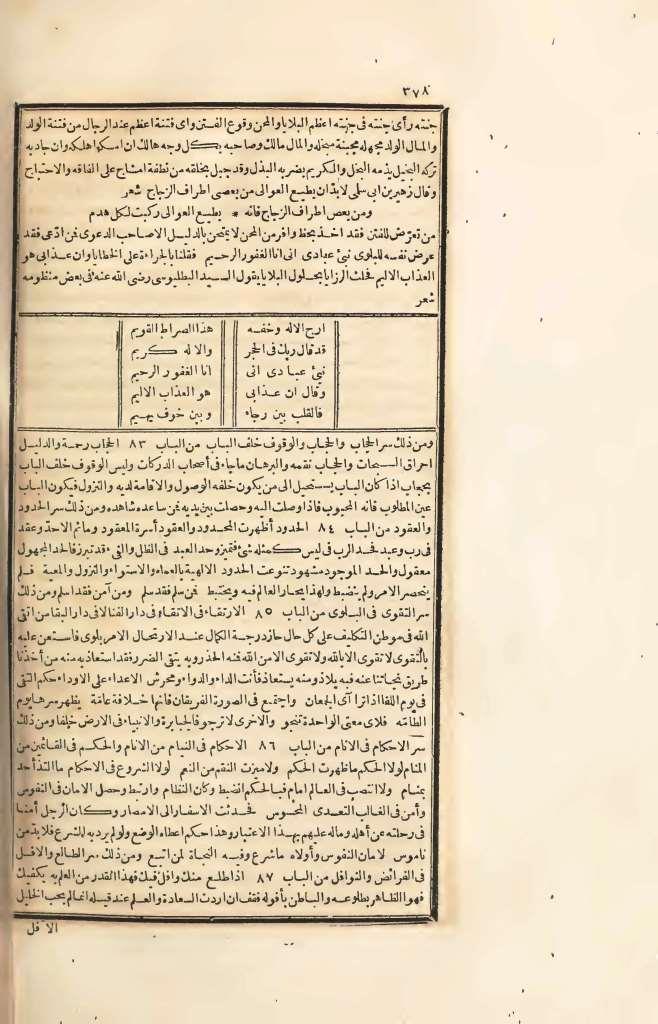 ٣٧٨
جنته رأى جنته فى جنته اعظم البلايا والمحن وقوع الفتن واى فتنة اعظم عند الرجال من فتنة الولد
والمال الولد مجهلة مجبنة مبخلة والمال مالك وصاحبه بكل وجه هالك ان امسكه اهلكه وان جاد به
تركه البخيل يذمه البخل والكريم يضر به البذل وقد جبل بخلقه من نطفة امشاج على الفاقه والاحتياج
وقال زهير بن ابى سلمى لا بد ان يطيع العوالى من يعصى اطراف الزجاج شعر
ومن يعص اطراف الزجاج فانه * يطيع العوالى ركبت لكل هدم
من تعرض للفتن فقد اخذ بحظ وافر من المحن لا يمتحن بالدليل الا صاحب الدعوى فمن ادعى فقد
عرض نفسه للبلوى نبئ عبادى انى انا الغفور الرحيم فقلنا بالجراءة على الخطايا وان عذابى هو
العذاب الاليم فحلت الرزايا بحلول البلايا يقول السيد البطليوسى رضى الله عنه فى بعض منظومه
شعر
ارج الاله وخفه هذا الصراط القويم
قد قال ربك فى الحجر والاله كريم
نبئ عبادى انى انا الغفور الرحيم
وقال ان عذابى هو العذاب الاليم
فالقلب بين رجاء وبين خوف يهيم
ومن ذلك سر الحجاب والحجاب والوقوف خلف الباب من الباب ٨٣ الحجاب رحمة والدليل
احراق السبحات والحجاب نقمه والبرهان ما جاء فى أصحاب الدركات وليس الوقوف خلف الباب
بحجاب اذا كان الباب يستحيل الى من يكون خلفه الوصول والاقامة لديه والنزول فيكون الباب
عين المطلوب فانه المحبوب فاذا وصلت اليه وحصلت بين يديه فمن ساعده شاهده ومن ذلك سر الحدود
والعقود من الباب ٨٤ الحدود أظهرت المحدود والعقود أسرة المعقود وما ثم الا حد وعقد
فى رب وعبد فحد الرب فى ليس كمثله شئ فتميز وحد العبد فى الظل والفئ قد تبرز فالحد المجهول
معقول والحد الموجود مشهود تنوعت الحدود الالهية بالعماء والاستواء والنزول والمعية فلم
ينحصر الامر ولم ينضبط ولهذا يحار العالم فيه ويختبط فمن سلم فقد سلم ومن آمن فقد اسلم ومن ذلك
سر التقوى فى البلوى من الباب ٨٥ الارتقاء فى الاتقاء فى دار الفنا لا فى دار البقا من اتقى
الله فى موطن التكليف على كل حال حاز درجة الكمال عند الارتحال الامر بلوى فاستعن عليه
بالتقوى لا تقوى الا بالله ولا تقوى الا من الله فنه الحذر وبه يتقى الضرر فقد استعاذ به منه من أخذنا
طريق نجاتنا عنه فبه يلاذ ومنه يستعاذ فأنت الداء والدواء ومحرش الاعداء على الاوداء حكم التقى
فى يوم اللقا اذا تراآى الجمعان واجتمع فى الصورة الفريقان فانها خلافة عامة يظهر سرها يوم
الطامه فلاى معنى الواحدة تنجو والاخرى لا ترجو فالجبابرة والانبياء فى الارض خلفا ومن ذلك
سر الاحكام فى الانام من الباب ٨٦ الاحكام فى النيام من الانام والحكم فى القائمين من
المنام لولا الحكم ما ظهرت الحكم ولا ميزت النقم من النعم لولا الشروع فى الاحكام ما التذ أحد
بمنام ولا انتصب فى العالم امام فبالحكم انضبط وكان النظام وارتبط وحصل الامان فى النفوس
وأمن فى الغالب التعدى المحسوس فحدثت الاسفار الى الامصار وكان الرجل آمنا
فى رحلته عن أهله وماله عليهم بهذا الاعتبار وهذا حكم اعطاه الوضع ولو لم يرد به الشرع فلا بد من
ناموس لامان النفوس وأولاه ما شرع وفيه النجاة لمن اتبع ومن ذلك سر الطالع والآفل
فى الفرائض والنوافل من الباب ٨٧ اذا طلع منك وافل فيك فهذا القدر من العلم به يكفيك
فهو الظاهر بطلوعه والباطن بأفوله فقف ان اردت السعادة والعلم عند قيله انما لم يحب الخليل
الآفل